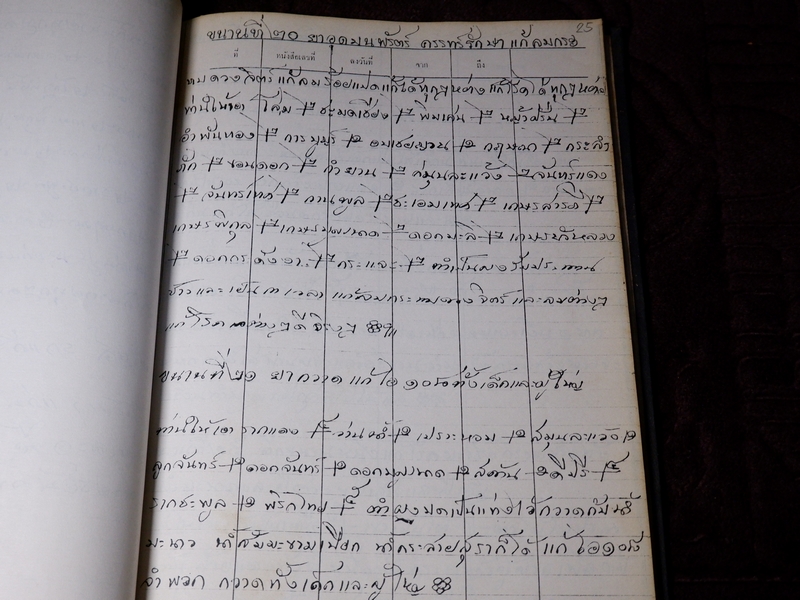 25
ขนานที่ ๒๐ ยาอุดมนพรัตร์ ครรทร์รักษา แก้ลมกรอ
ที่ หนังสือเลขที่ ลงวันที่ จาก ถึง
แก้ลมร้อยแปด แก้ได้ทุกๆหย่าง แก้โรคได้ทุกๆหย่าง
ท่านให้เอา โสม ชะมดเชียง พิมเสน หญ้าฝรั่น
อำพันทอง การบูร อบเชยญวน กฤษณา กระลำ
ภัก ขอนดอก กำยาน สมุนละแว้ง จันทร์แดง
จันทร์เทศ กานพูล ชะเอมเทศ เกษรสารภี
เกษรพิกุล เกษรบุนนาค ดอกมะลิ เกษรบัวหลวง
ดอกกระดังงา กระแจะ ทำเป็นผงรับประทาน
เช้าและเย็น แก้ลม จิตร์และลมต่างๆ
แก้โรคต่างๆดีจริงๆ
ขนานที่ ๒๑ ยากวาด แก้ไอ ๑๐๘ ทั้งเด็กและผู้ใหญ่
ท่านให้เอา รากแดง ว่านน้ำ เปราะหอม สมุนละแว้ง ๑
ลูกจันทร์ ดอกจันทร์ ดอกบุนนาค ดีปรี
รากชะพูล พริกไทย ตำผงบดเป็นแท่งไว้กวาดกับน้ำ
มะนาว น้ำส้มมะขามเปียก น้ำกระสายสุราก็ได้ แก้ไอ ๑๐๘
จำพวก กวาดทั้งเด็กและผู้ใหญ่